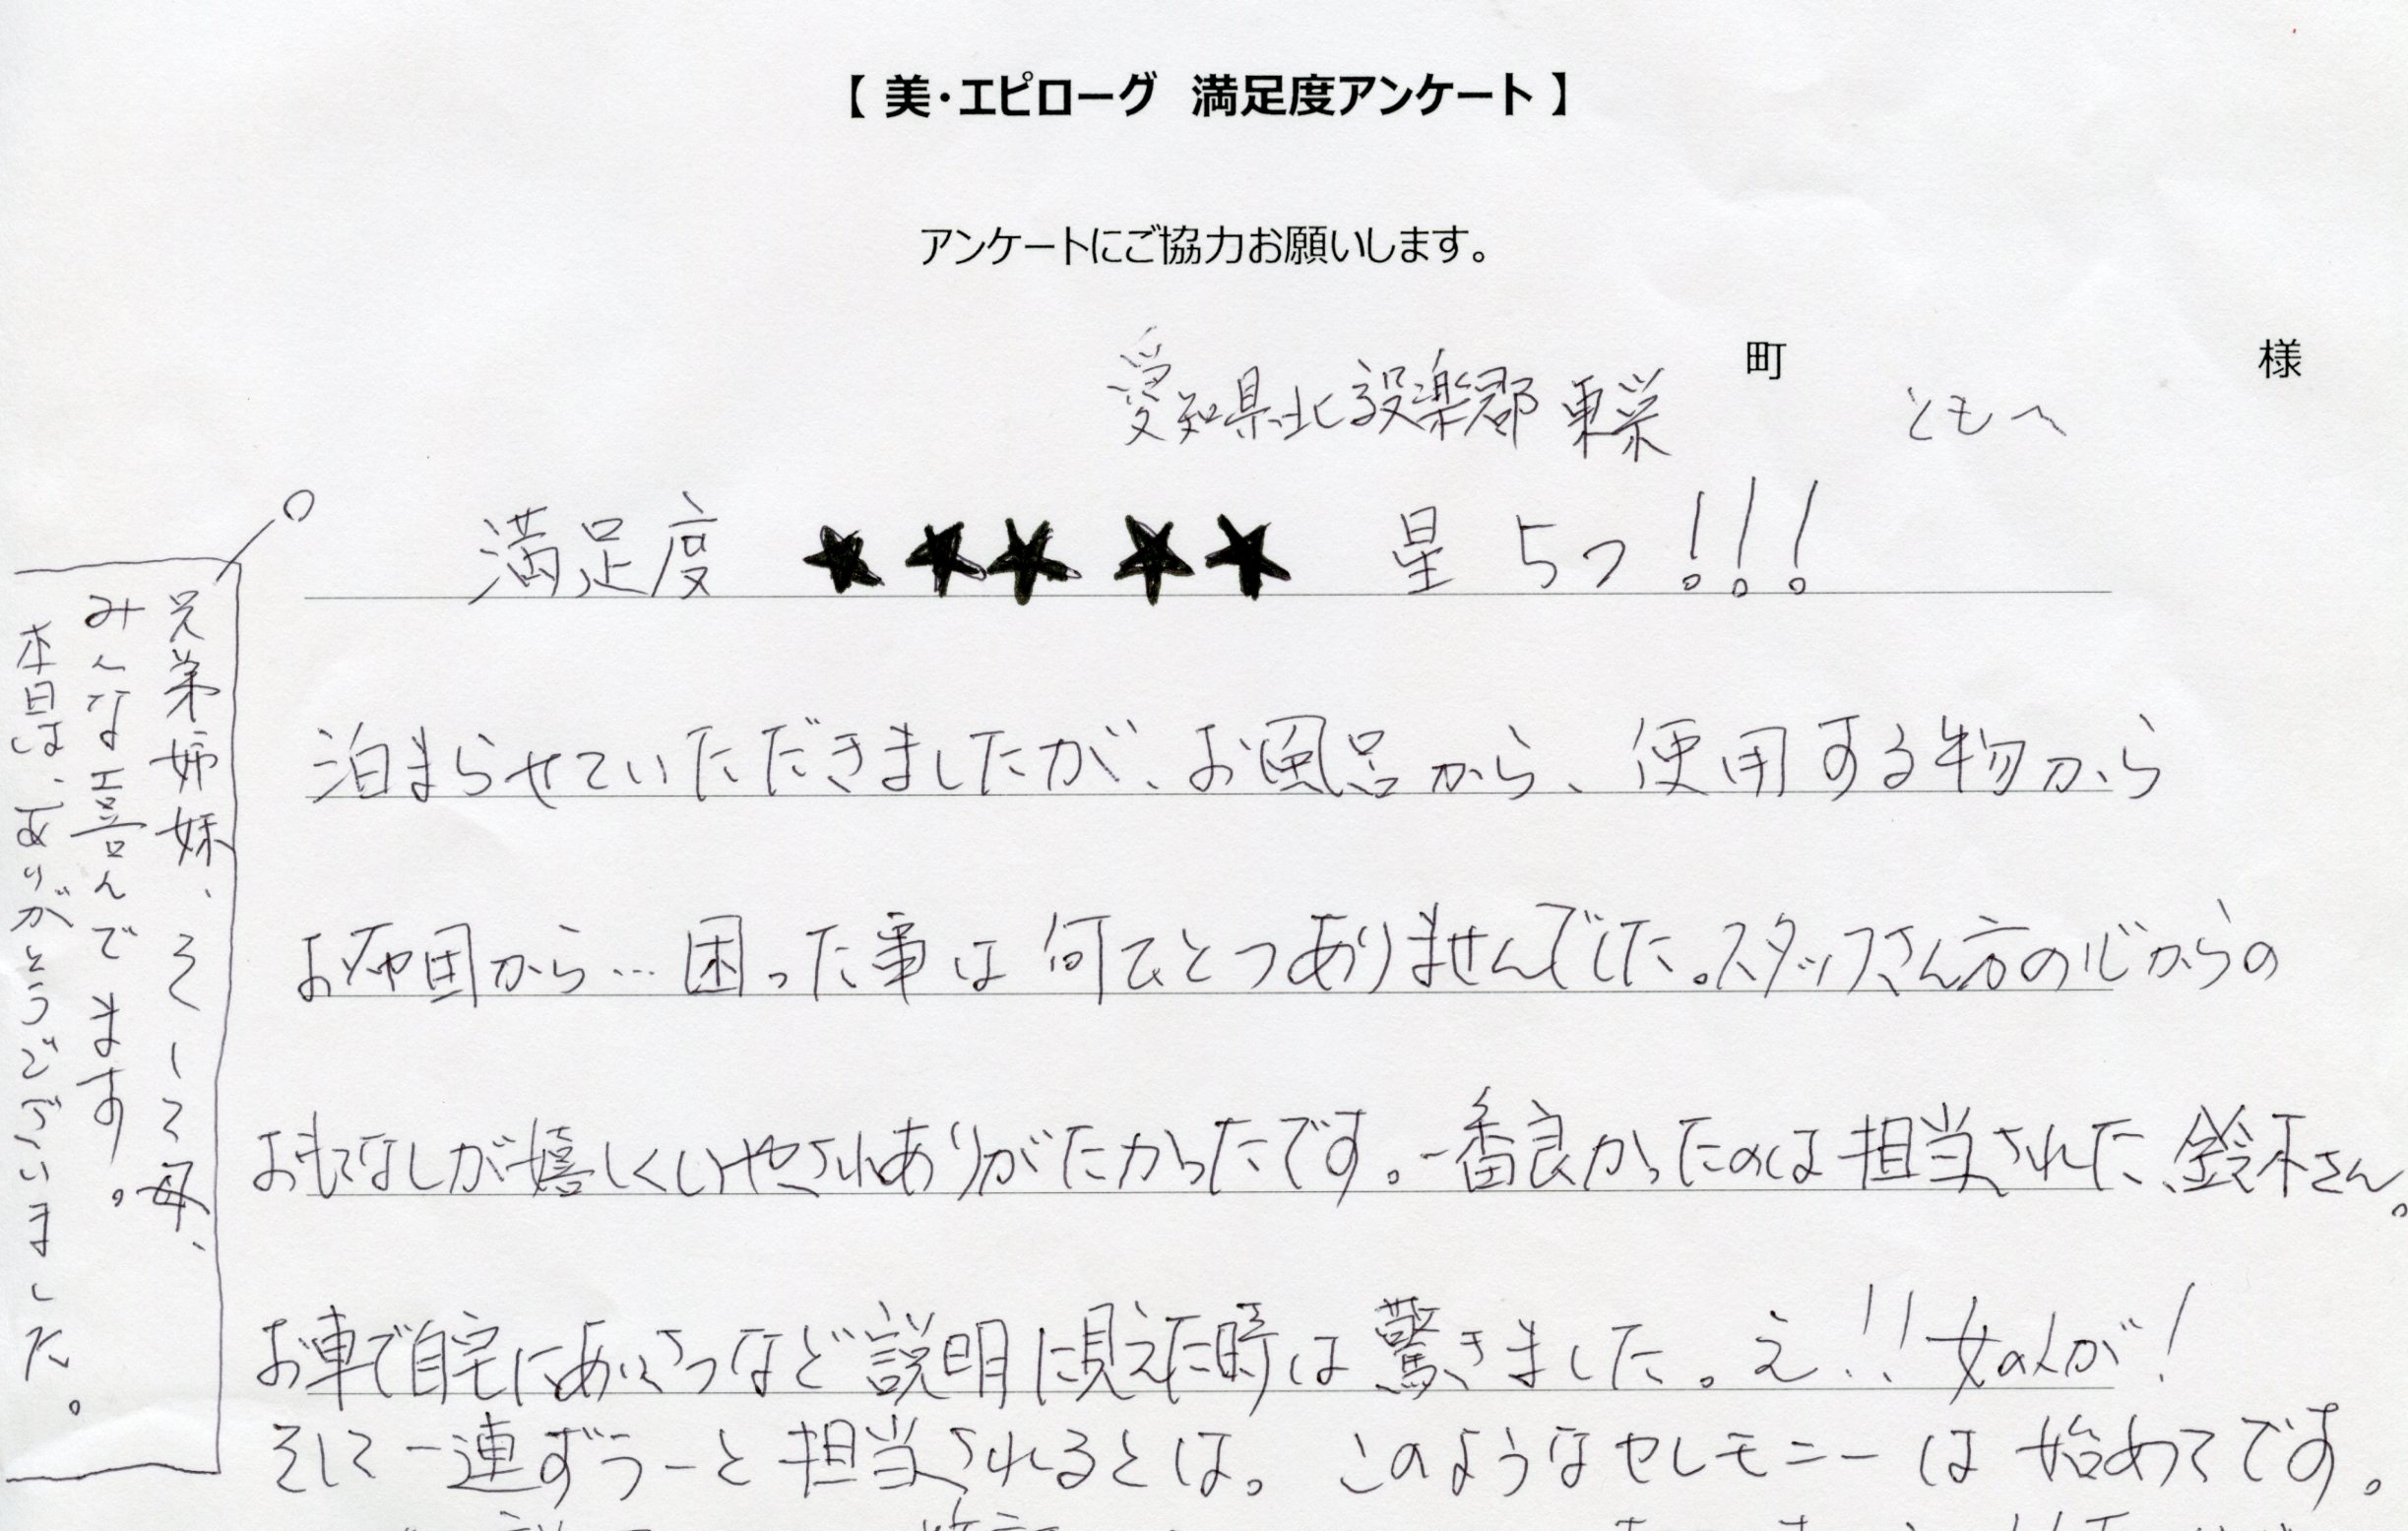 【 美・エピローグ 満足度アンケート 】
アンケートにご協力お願いします。
町 様
愛知県北設楽郡 東栄 とも
満足度 ★★★★★ 星 5つ!!!
泊まらせていただきましたが、お風呂から、使用する物から
お布団から… 困った事は何ひとつありませんでした。スタッフさん方の心からの
おもてなしが嬉しくいやされありがたかったです。一番良かったのは担当された、鈴木さん。
お車で自宅にあいさつなど説明に見えた時は驚きました。え!! 女の人が!
そして一連ずうーと担当されるとは。このようなセレモニーは始めてです。
兄弟姉妹、そして母、
みんな喜んでます。
本日は、ありがとうございました。